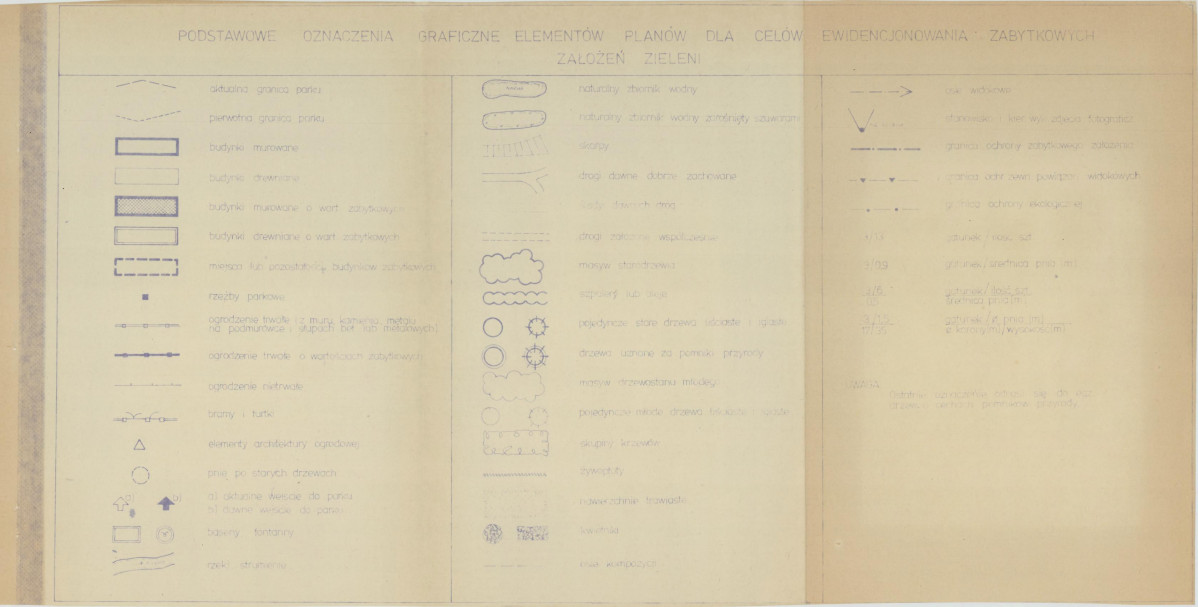 PODSTAWOWE OZNACZENIA GRAFICZNE ELEMENTÓW PLANÓW DLA CELÓW EWIDENCJONOWANIA ZABYTKOWYCH
ZAŁOŻEŃ ZIELENI
aktualna granica parku
pierwotna granica parku
budynki murowane
budynki drewniane
budynki murowane o wart. zabytkowych
budynki drewniane o wart. zabytkowych
miejsca lub pozostałości budynków zabytkowych
rzeźby parkowe
ogrodzenie trwałe (z muru, kamienia, metalu
na podmurówce i słupach bet. lub metalowych)
ogrodzenie trwałe o wartościach zabytkowych
ogrodzenie nietrwałe
bramy i furtki
elementy architektury ogrodowej
pnie po starych drzewach
a) aktualne wejście do parku
b) dawne wejście do parku
baseny fontanny
rzeki strumienie
naturalny zbiornik wodny
naturalny zbiornik wodny zarośnięty szuwarami
skarpy
drogi dawne dobrze zachowane
ślady dawnych dróg
drogi założone współcześnie
masyw starodrzewia
szpalery lub aleje
pojedyncze stare drzewa liściaste i iglaste
drzewa uznane za pomniki przyrody
masyw drzewostanu młodego
pojedyncze młode drzewa liściaste i iglaste
skupiny krzewów
żywopłoty
nawierzchnie trawiaste
kwietniki
osie widokowe
stanowisko i kier. wyk. zdjęcia fotograficz.
granica ochrony zabytkowego założenia
granica ochr. zewn. powiązań widokowych
granica ochrony ekologicznej
gatunek / ilość szt.
gatunek / średnica pnia (m)
gatunek / ilość szt.
średnica pnia (m)
gatunek / ø pnia (m)
ø korony (m) / wysokość (m)
UWAGA